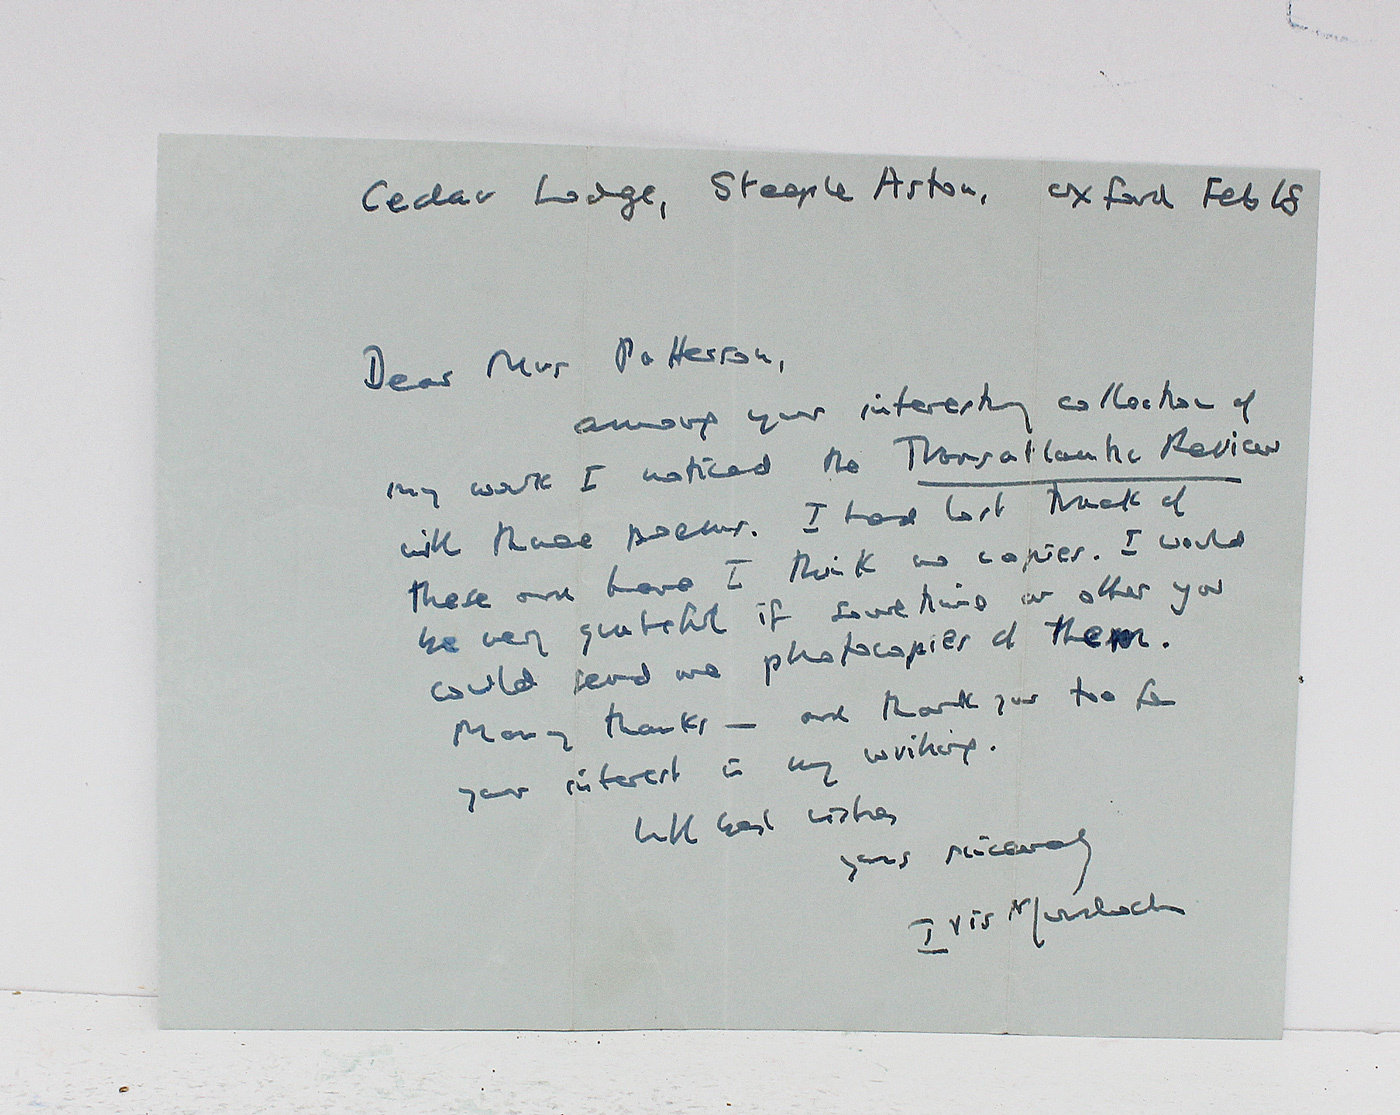 Cedar Lodge, Steeple Aston, Oxford Feb 18
Dear Mrs Patterson,
among your interesting collection of
my work I noticed the Transatlantic Review
with three poems. I had lost track of
these and have I think no copies. I would
be very grateful if sometime or other you
could send me photocopies of them.
Many thanks — and thank you too for
your interest in my writing.
With best wishes
yours sincerely
Iris Murdoch